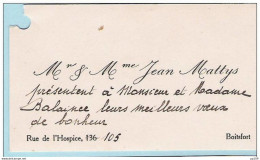 Mr & Mme Jean Mattys
présentent à Monsieur et Madame
Balaince leurs meilleurs vœux
de bonheur
Rue de l'Hospice, 136 105 Boitsfort